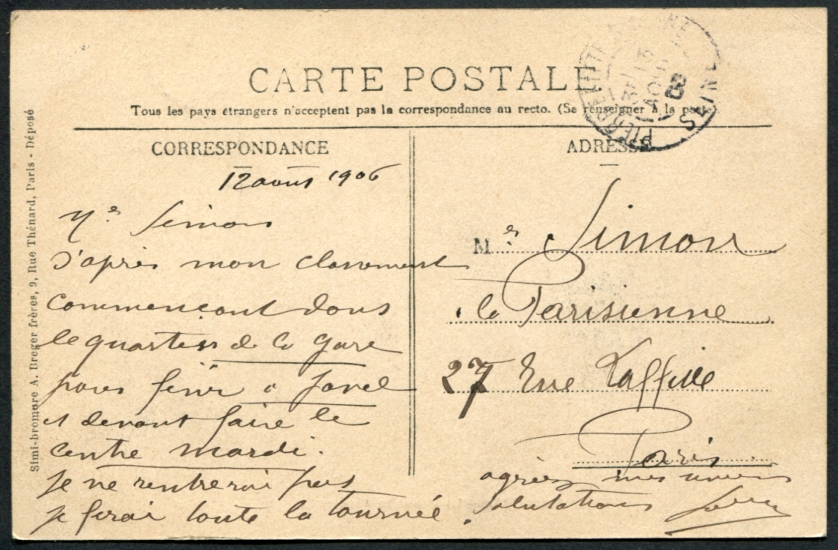 CARTE POSTALE
Tous les pays étrangers n'acceptent pas la correspondance au recto. (Se renseigner à la poste
CORRESPONDANCE
12 aout 1906
Mr Simon
d'après mon classement
commencant dans
le quartier de la gare
pour finir a Javel
et devant faire le
centre mardi.
je ne rentrerai pas
je ferai toute la tournée
ADRESSE
Mr Simon
la Parisienne
27 Rue Laffitte
Paris
agréez mes
Salutations
PIERREFITTE
SEINE
Simi-bromure A. Breger frères, 9, Rue Thénard, Paris - Déposé